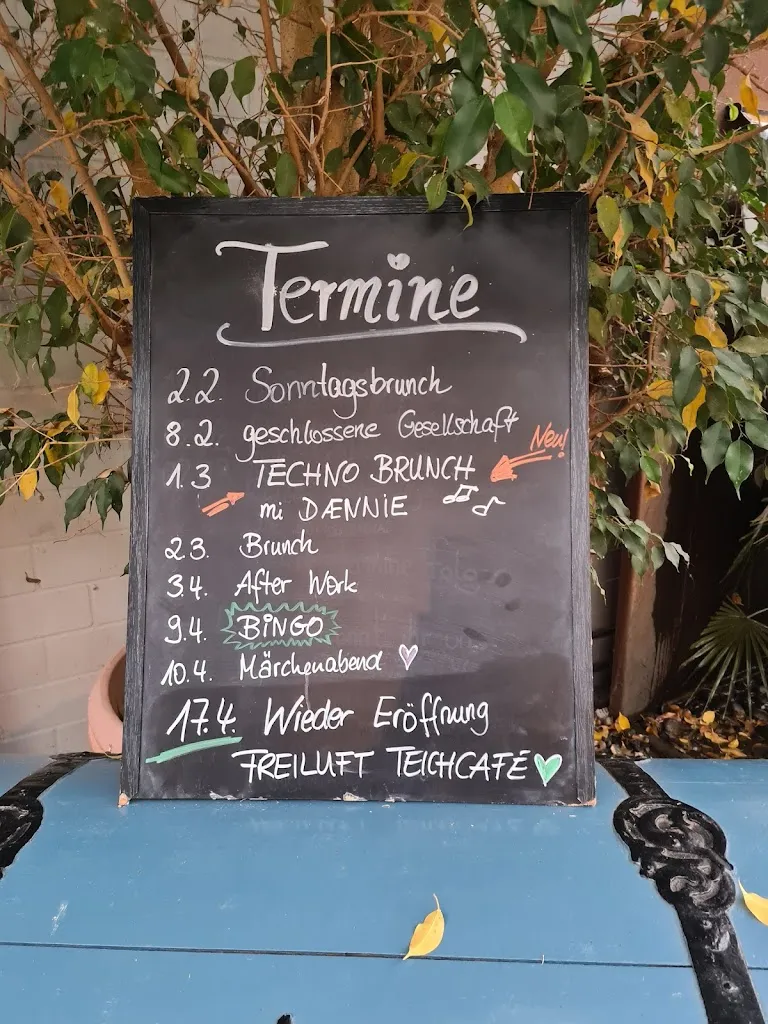 Termine
2.2. Sonntagsbrunch
8.2. geschlossene Gesellschaft
Neu!
1.3 TECHNO BRUNCH
mi DÆNNIE
2.3. Brunch
3.4. After Work
9.4. BINGO
10.4. Märchenabend
17.4. Wieder Eröffnung
FREILUFT TEICHCAFÉ